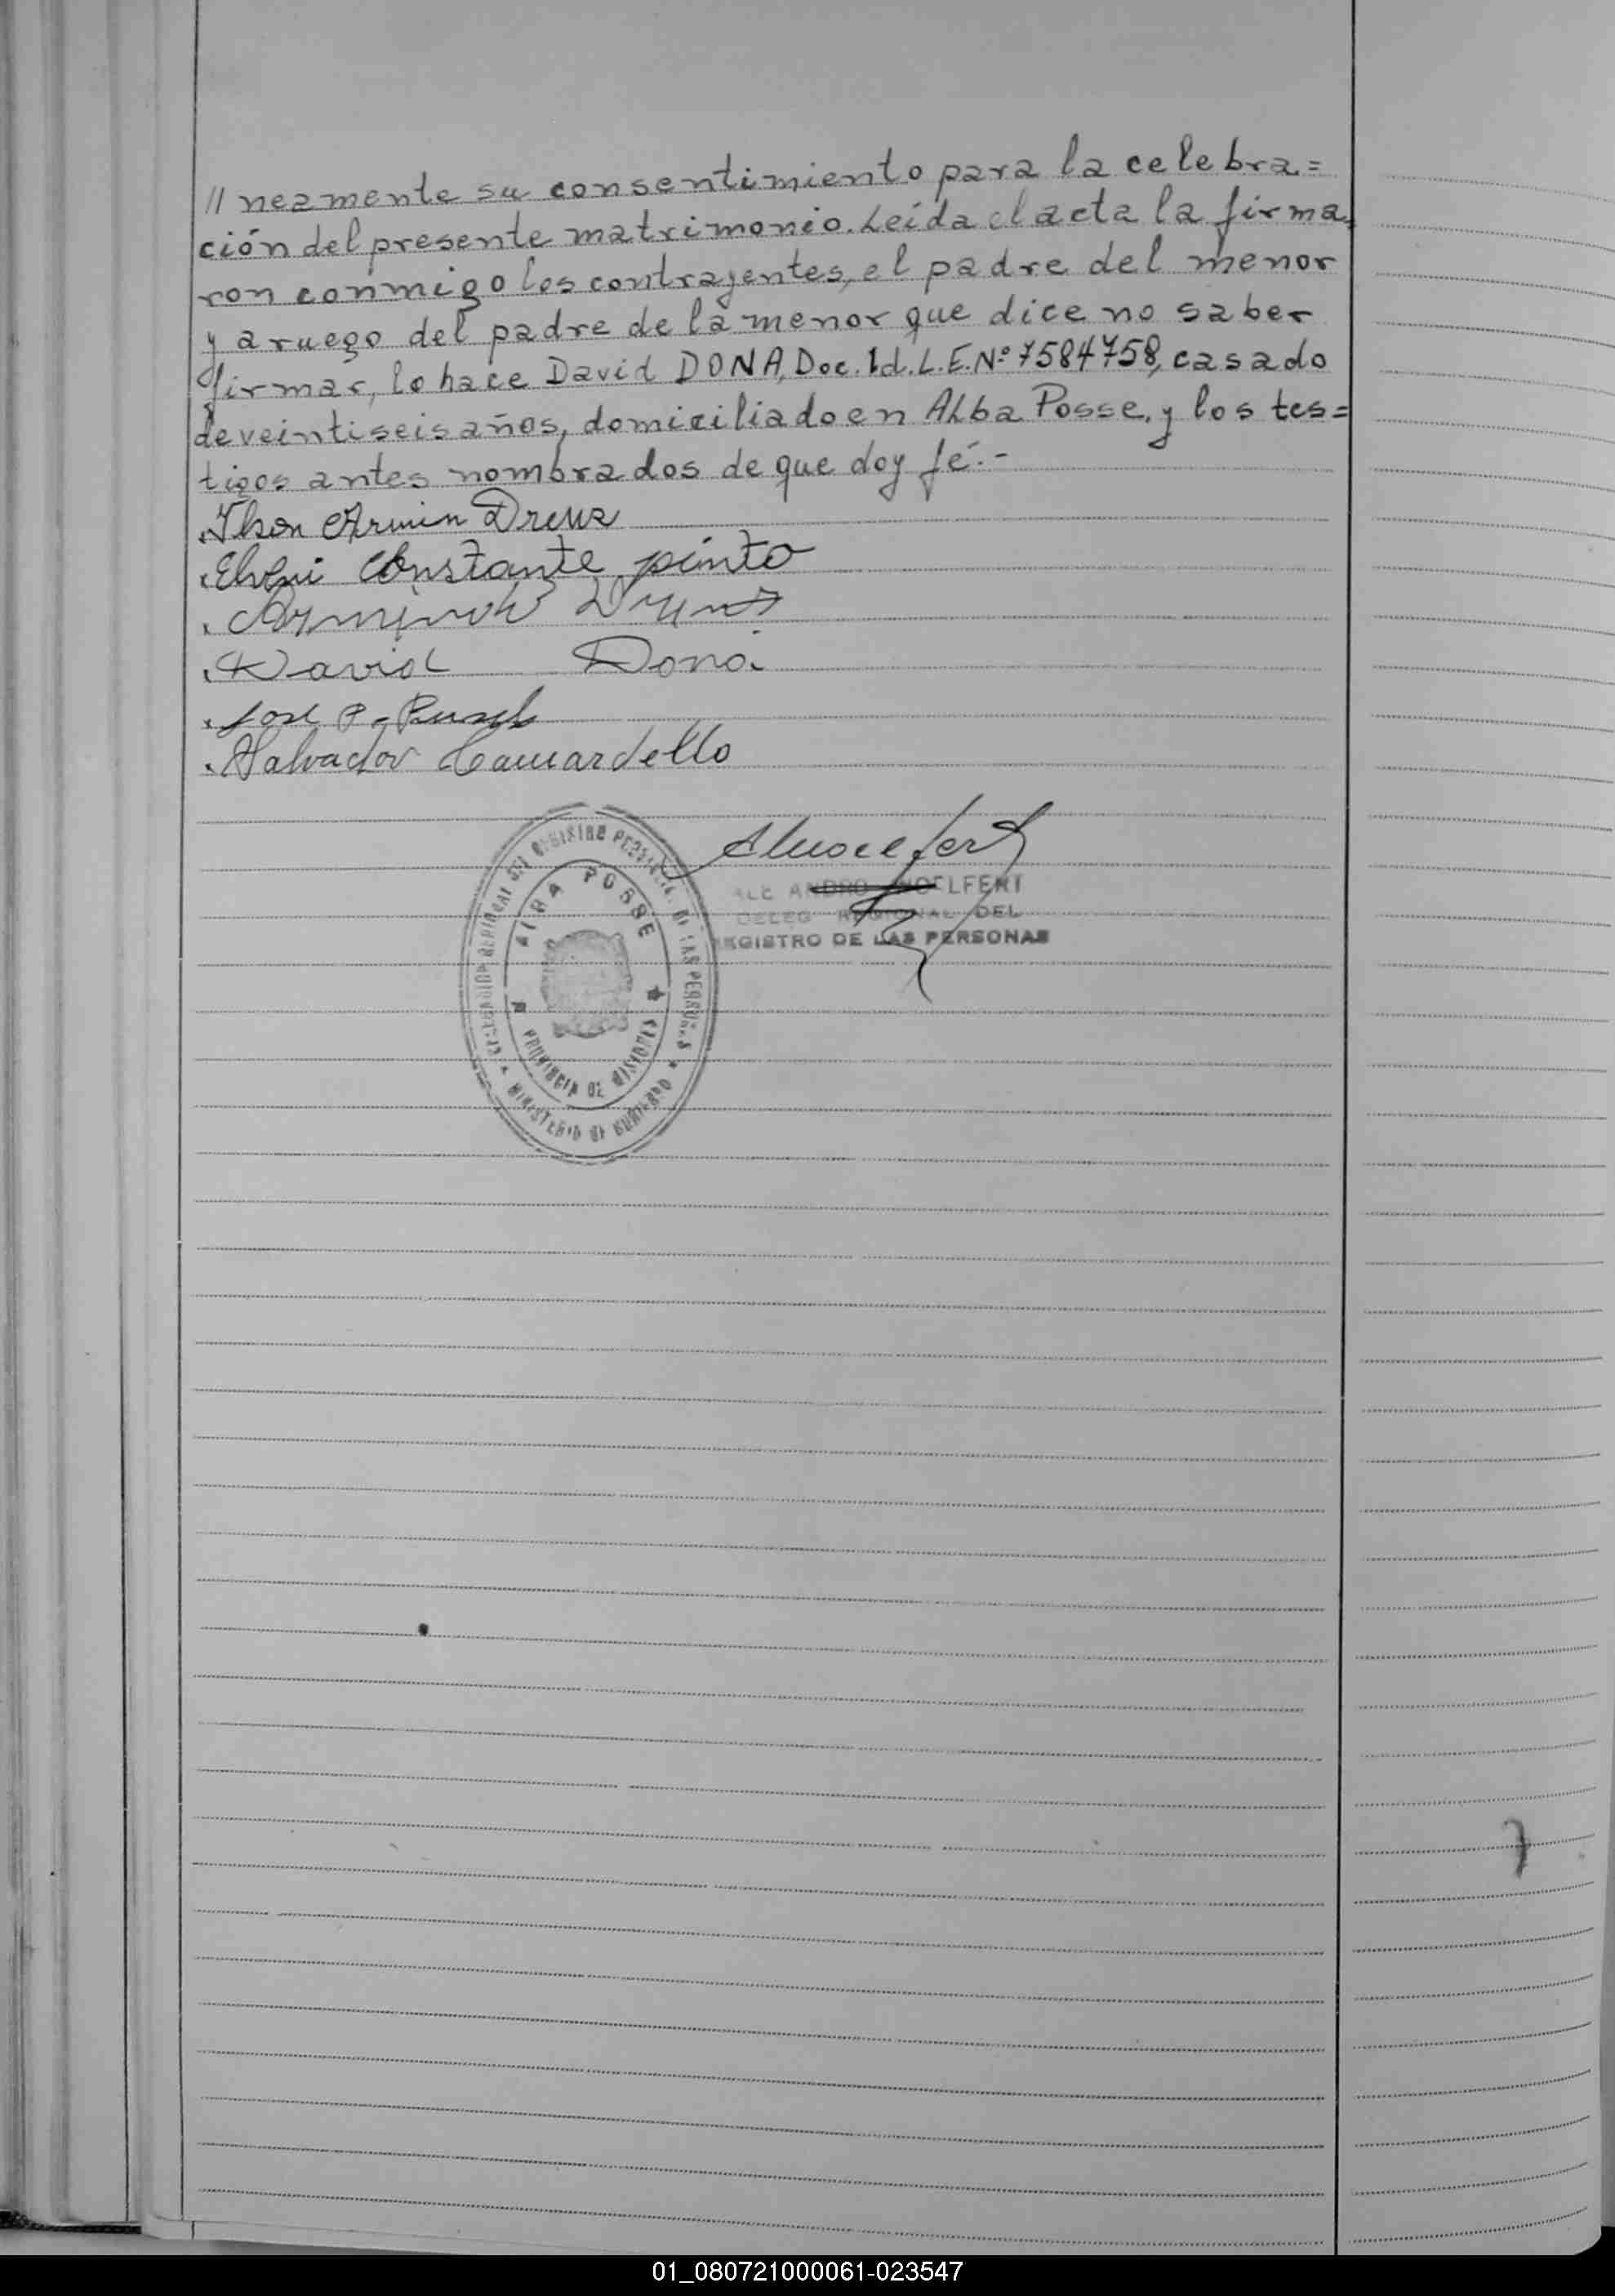 // neamente su consentimiento para la celebra=
ción del presente matrimonio. Leída el acta la firma=
ron conmigo los contrayentes, el padre del menor
y a ruego del padre de la menor que dice no saber
firmar, lo hace David DONA, Doc. Id. L.E. Nº 7584758, casado
de veintiseis años, domiciliado en Alba Posse, y los tes=
tigos antes nombrados de que doy fé.-
Ilson Armin Drews
Constante pinto
David Dona
José P.
Salvador Camardello
DELEGACION REGIONAL DEL REGISTRO PROVINCIAL DE LAS PERSONAS
ALBA POSSE
PROVINCIA DE MISIONES
MINISTERIO DE GOBIERNO
DELEG REGIONAL DEL
REGISTRO DE LAS PERSONAS
01_080721000061-023547